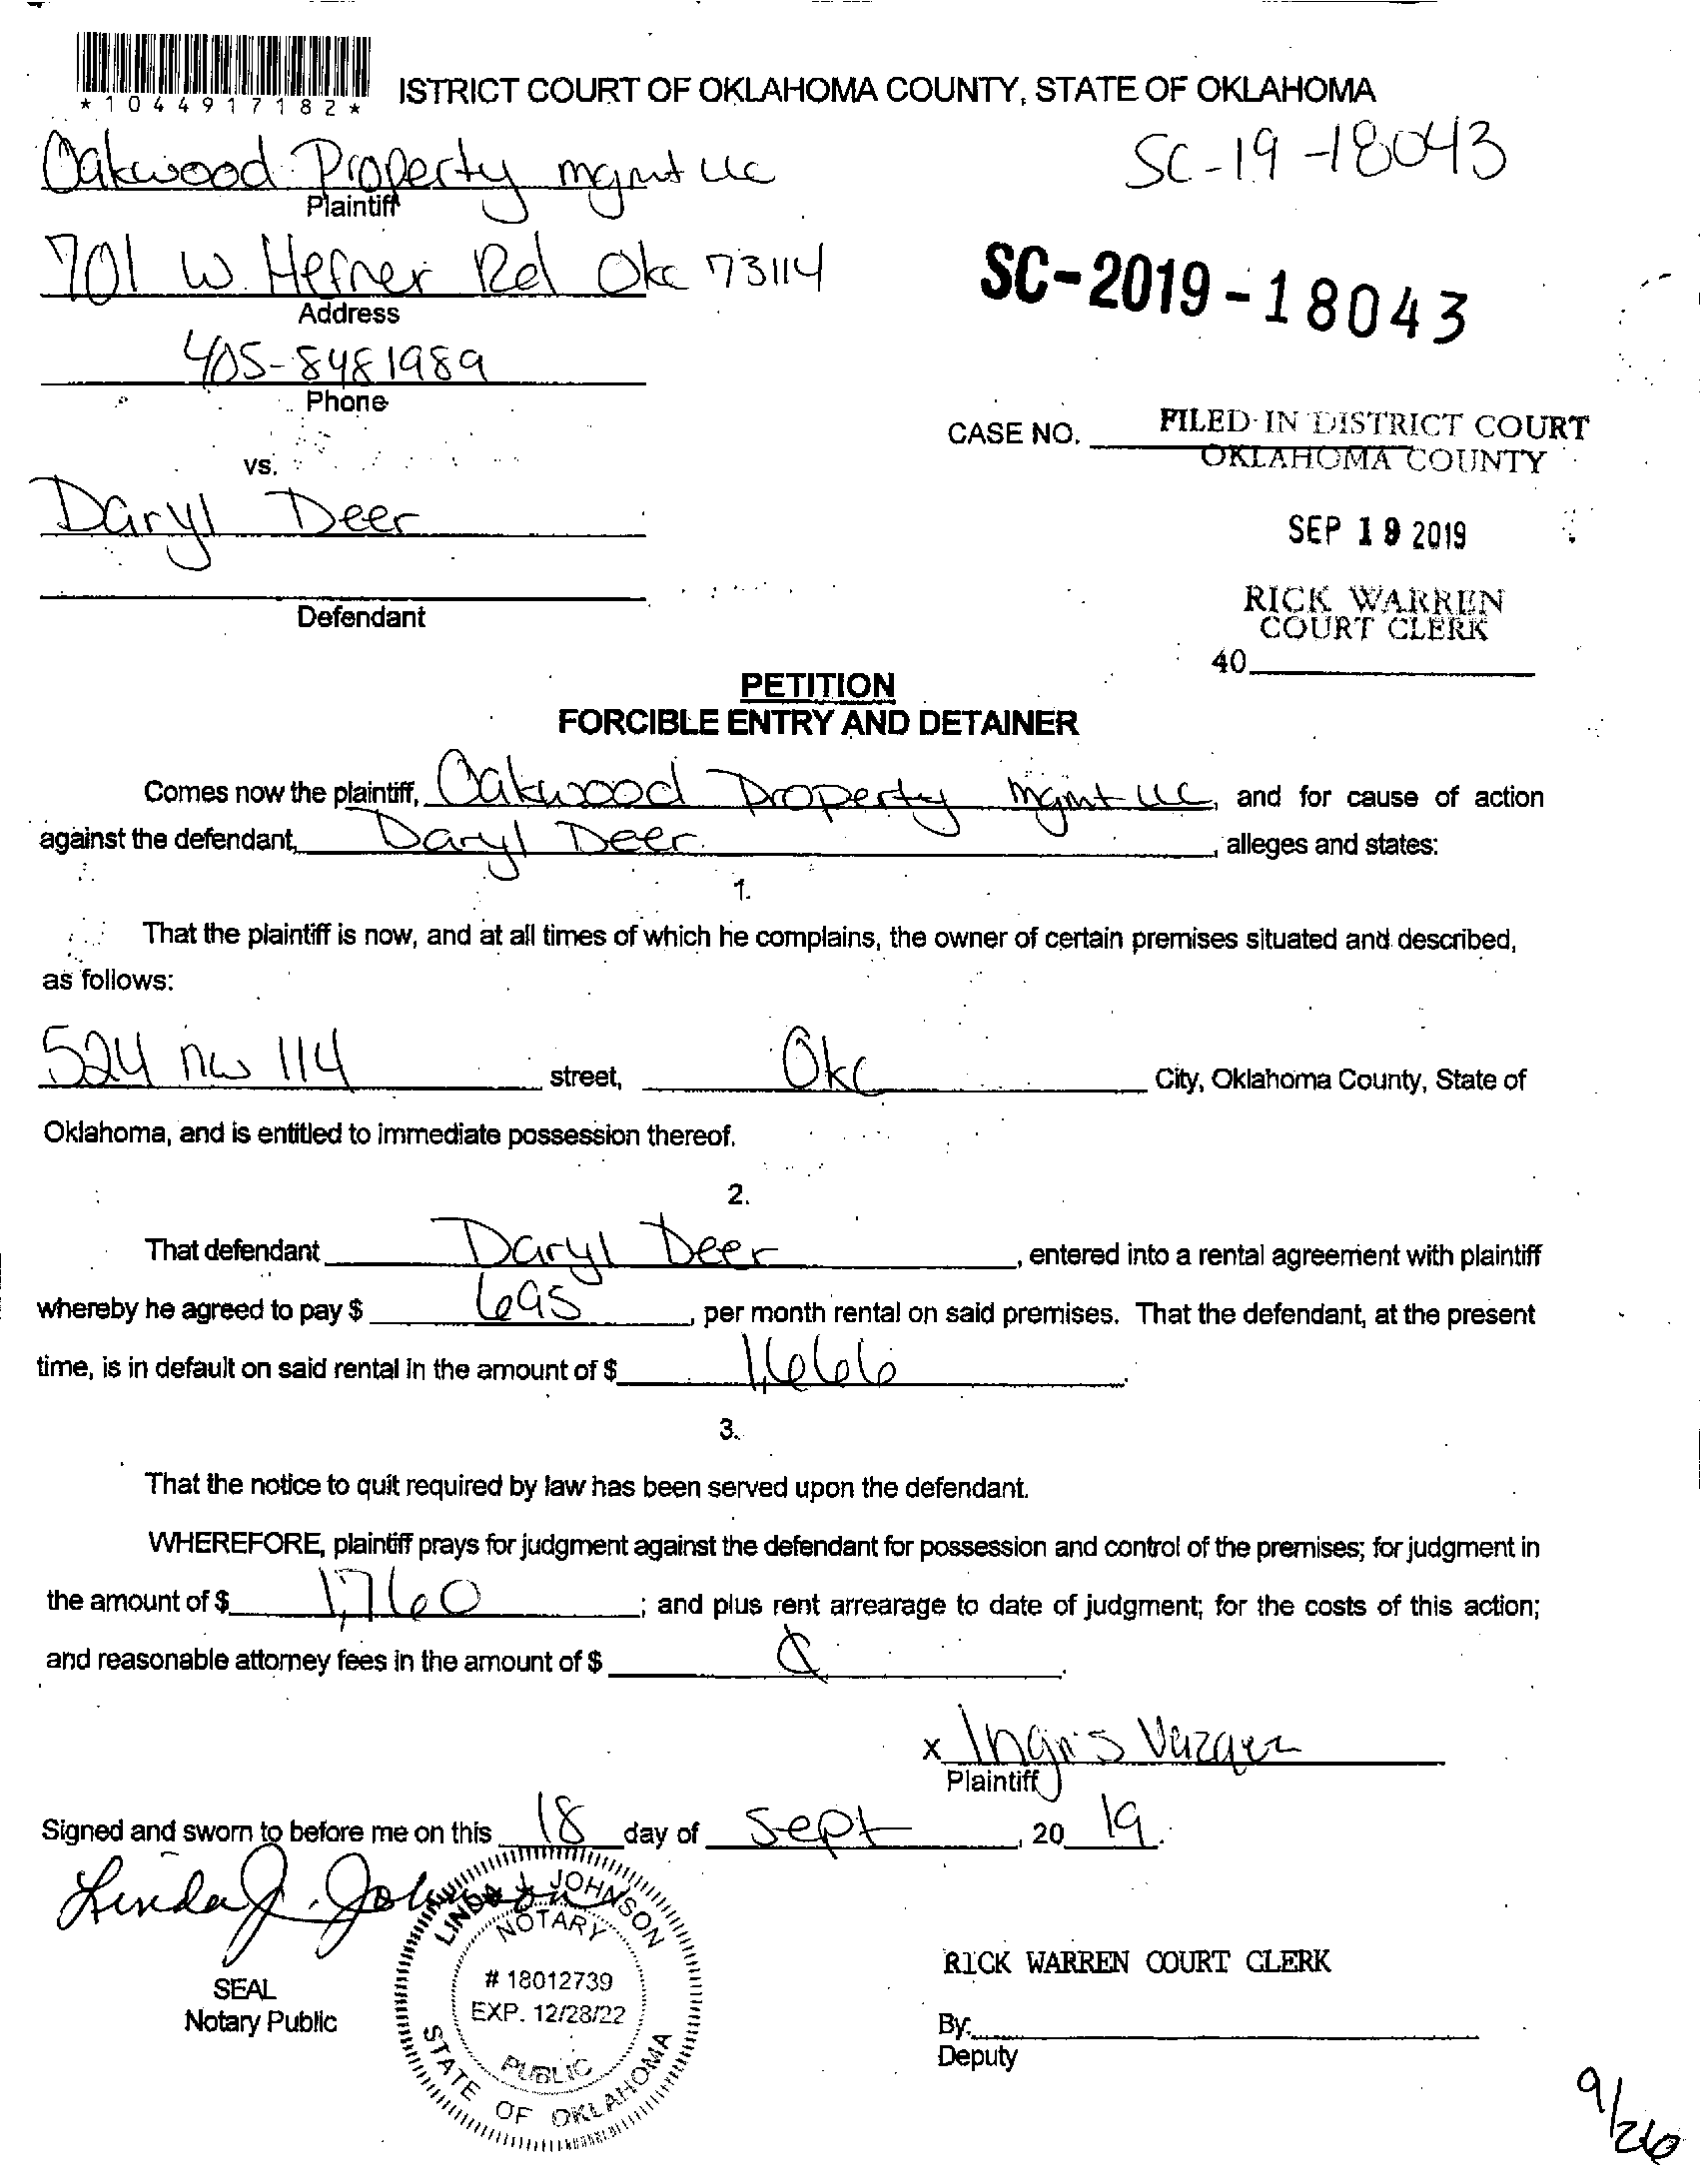 *1044917182*
ISTRICT COURT OF OKLAHOMA COUNTY, STATE OF OKLAHOMA
Oakwood Property mgmt LLC
Plaintiff
SC-19-18043
701 W. Hefner Rd Okc 73114
Address
SC-2019-18043
405-8481989
Phone
CASE NO.
FILED IN DISTRICT COURT
OKLAHOMA COUNTY
vs.
Daryl Deer
SEP 19 2019
Defendant
RICK WARREN
COURT CLERK
40
PETITION
FORCIBLE ENTRY AND DETAINER
Comes now the plaintiff, Oakwood Property Mgmt LLC, and for cause of action
against the defendant, Daryl Deer, alleges and states:
1.
That the plaintiff is now, and at all times of which he complains, the owner of certain premises situated and described,
as follows:
524 nw 114 street, Okc City, Oklahoma County, State of
Oklahoma, and is entitled to immediate possession thereof.
2.
That defendant Daryl Deer, entered into a rental agreement with plaintiff
whereby he agreed to pay $ 695, per month rental on said premises. That the defendant, at the present
time, is in default on said rental in the amount of $ 1,666.
3.
That the notice to quit required by law has been served upon the defendant.
WHEREFORE, plaintiff prays for judgment against the defendant for possession and control of the premises; for judgment in
the amount of $ 1,760; and plus rent arrearage to date of judgment; for the costs of this action;
and reasonable attorney fees in the amount of $
x Ingris Vazquez
Plaintiff
Signed and sworn to before me on this 18 day of Sept, 2019.
Linda J. Johnson
LINDA J. JOHNSON
NOTARY
# 18012739
EXP. 12/28/22
PUBLIC
STATE OF OKLAHOMA
SEAL
Notary Public
RICK WARREN COURT CLERK
By:
Deputy
9/26